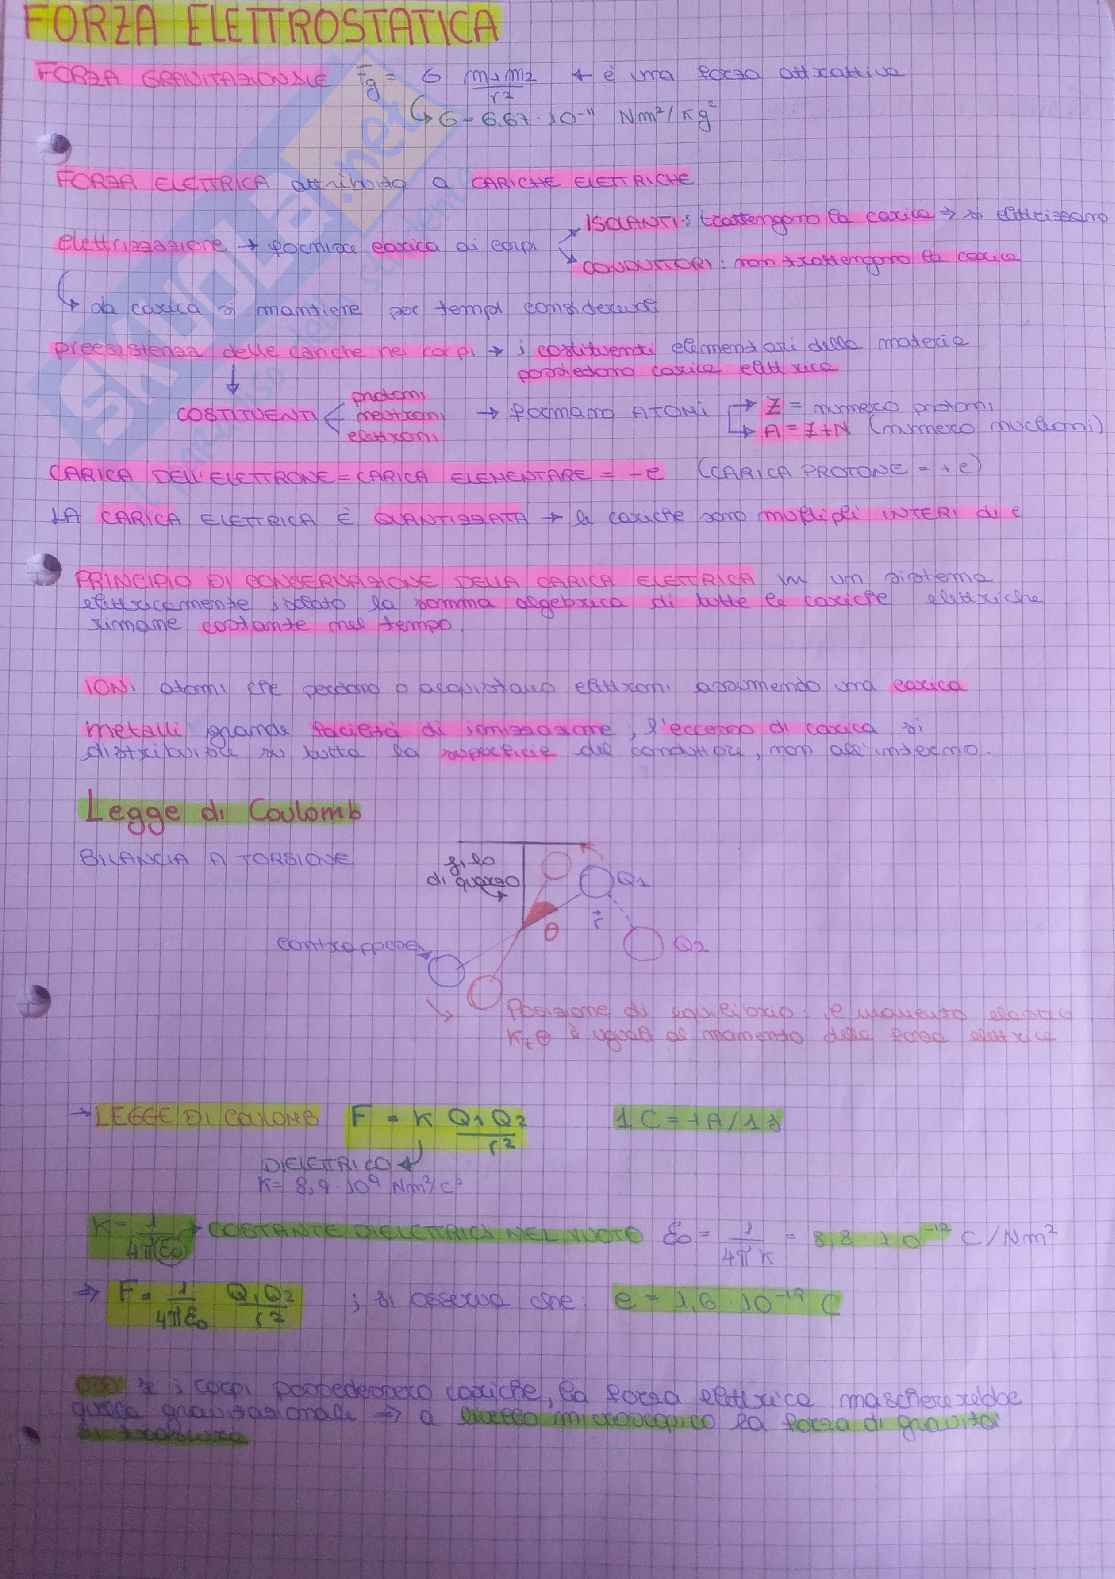 FORZA ELETTROSTATICA
FORZA GRAVITAZIONALE Fg = G m1 m2 / r² → è una forza attrattiva
↳ G = 6,67 · 10⁻¹¹ Nm²/Kg²
FORZA ELETTRICA attribuita a CARICHE ELETTRICHE
elettrizzazione → fornire carica ai corpi
ISOLANTI: trattengono la carica → si elettrizzano
CONDUTTORI: non trattengono la carica
↳ la carica si mantiene per tempi considerevoli
preesistenza delle cariche nei corpi → i costituenti elementari della materia
possiedono carica elettrica
↓
COSTITUENTI < protoni neutroni elettroni → formano ATOMI → Z = numero protoni
→ A = Z+N (numero nucleoni)
CARICA DELL'ELETTRONE = CARICA ELEMENTARE = -e (CARICA PROTONE = +e)
LA CARICA ELETTRICA È QUANTIZZATA → le cariche sono multipli INTERI di e
PRINCIPIO DI CONSERVAZIONE DELLA CARICA ELETTRICA in un sistema
elettricamente isolato la somma algebrica di tutte le cariche elettriche
rimane costante nel tempo.
IONI atomi che perdono o acquistano elettroni assumendo una carica
metalli grande facilità di ionizzazione, l'eccesso di carica si
distribuisce su tutta la superficie del conduttore, non all'interno.
Legge di Coulomb
BILANCIA A TORSIONE
filo
di quarzo
Q1
θ
r
Q2
contrappeso
Posizione di equilibrio: il momento elastico
Kt θ è uguale al momento della forza elettrica
→ LEGGE DI COULOMB F = K Q1 Q2 / r² 1 C = 1A/1s
DIELETTRICO
K = 8,9 · 10⁹ Nm²/C²
K = 1 / 4πε0 → COSTANTE DIELETTRICA NEL VUOTO ε0 = 1 / 4πK = 8,8 · 10⁻¹² C/Nm²
⇒ F = 1 / 4πε0 Q1 Q2 / r² ; si osserva che: e = 1,6 · 10⁻¹⁹ C
se i corpi possedessero cariche, la forza elettrica maschererebbe
quella gravitazionale ⇒ a livello microscopico la forza di gravità
si trascura
SKUOLA.net